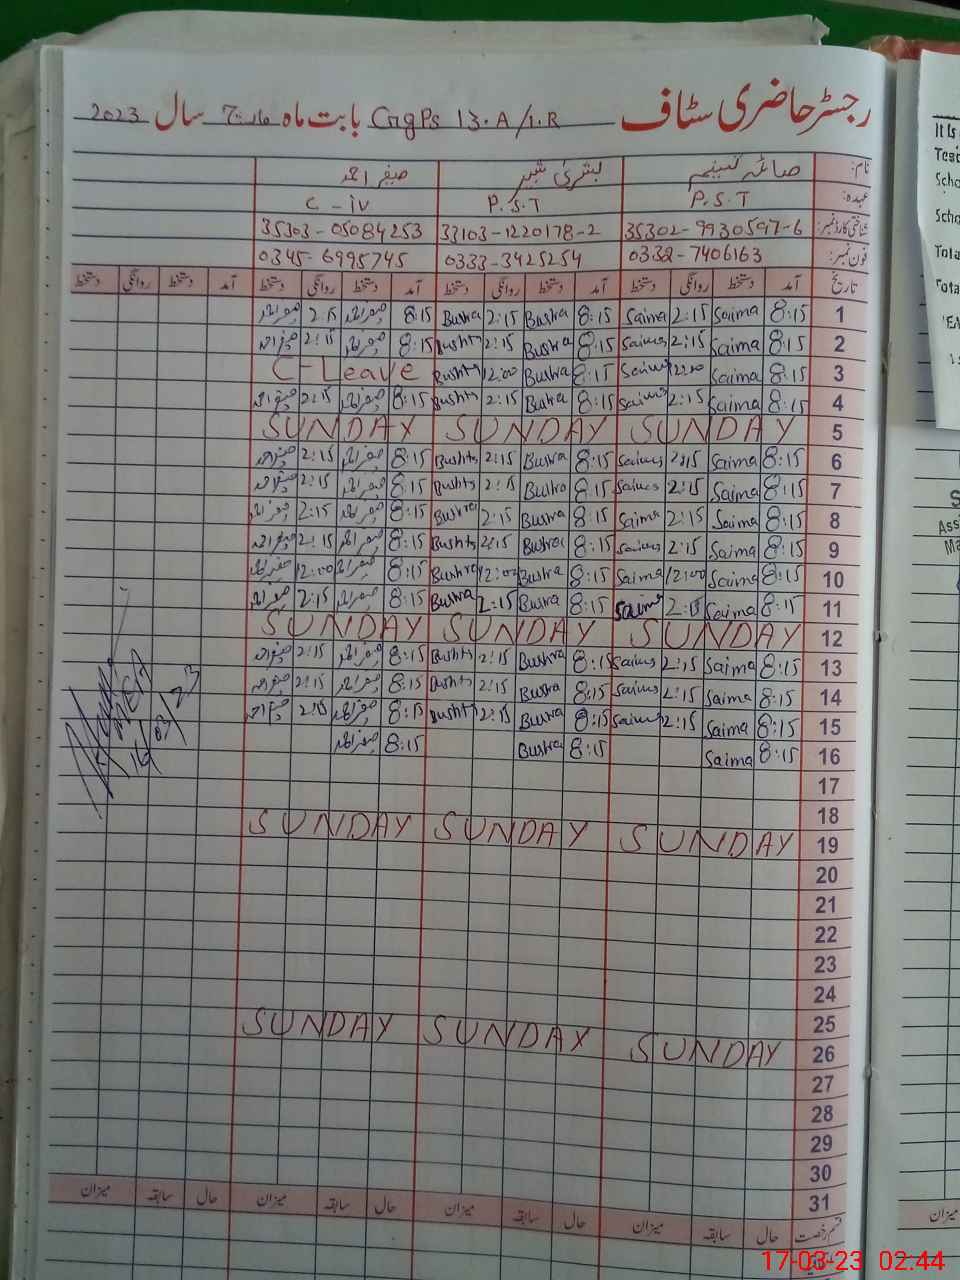 رجسٹر حاضری سٹاف GgPs 13.A/1.R بابت ماہ مارچ سال 2023
نام: صائمہ تسنیم بشریٰ صفیر احمد
عہدہ: P.S.T P.S.T C-iv
شناختی کارڈ نمبر: 35302-9930597-6 33103-1220178-2 35303-05084253
فون نمبر: 0332-7406163 0333-3425254 0345-6995745
تاریخ آمد دستخط روانگی دستخط آمد دستخط روانگی دستخط آمد دستخط روانگی دستخط آمد دستخط روانگی دستخط
1 8:15 Saima 2:15 Saima 8:15 Bushra 2:15 Bushra 8:15 صفیر احمد 2:15 صفیر احمد
2 8:15 Saima 2:15 Saima 8:15 Bushra 2:15 Bushra 8:15 صفیر احمد 2:15 صفیر احمد
3 8:15 Saima 12:00 Saima 8:15 Bushra 12:00 Bushra C-Leave
4 8:15 Saima 2:15 Saima 8:15 Bushra 2:15 Bushra 8:15 صفیر احمد 2:15 صفیر احمد
5 SUNDAY SUNDAY SUNDAY
6 8:15 Saima 2:15 Saima 8:15 Bushra 2:15 Bushra 8:15 صفیر احمد 2:15 صفیر احمد
7 8:15 Saima 2:15 Saima 8:15 Bushra 2:15 Bushra 8:15 صفیر احمد 2:15 صفیر احمد
8 8:15 Saima 2:15 Saima 8:15 Bushra 2:15 Bushra 8:15 صفیر احمد 2:15 صفیر احمد
9 8:15 Saima 2:15 Saima 8:15 Bushra 2:15 Bushra 8:15 صفیر احمد 2:15 صفیر احمد
10 8:15 Saima 12:00 Saima 8:15 Bushra 12:00 Bushra 8:15 صفیر احمد 12:00 صفیر احمد
11 8:15 Saima 2:15 Saima 8:15 Bushra 2:15 Bushra 8:15 صفیر احمد 2:15 صفیر احمد
12 SUNDAY SUNDAY SUNDAY
13 8:15 Saima 2:15 Saima 8:15 Bushra 2:15 Bushra 8:15 صفیر احمد 2:15 صفیر احمد
14 8:15 Saima 2:15 Saima 8:15 Bushra 2:15 Bushra 8:15 صفیر احمد 2:15 صفیر احمد
15 8:15 Saima 2:15 Saima 8:15 Bushra 2:15 Bushra 8:15 صفیر احمد 2:15 صفیر احمد
16 8:15 Saima 8:15 Bushra 8:15 صفیر احمد
16/03/23
17
18
19 SUNDAY SUNDAY SUNDAY
20
21
22
23
24
25
26 SUNDAY SUNDAY SUNDAY
27
28
29
30
31
قسم رخصت حال سابقہ میزان حال سابقہ میزان حال سابقہ میزان حال سابقہ میزان
It is
Scho
Scho
Tota
Tota
Assi
Ma
میزان
17-03-23 02:44